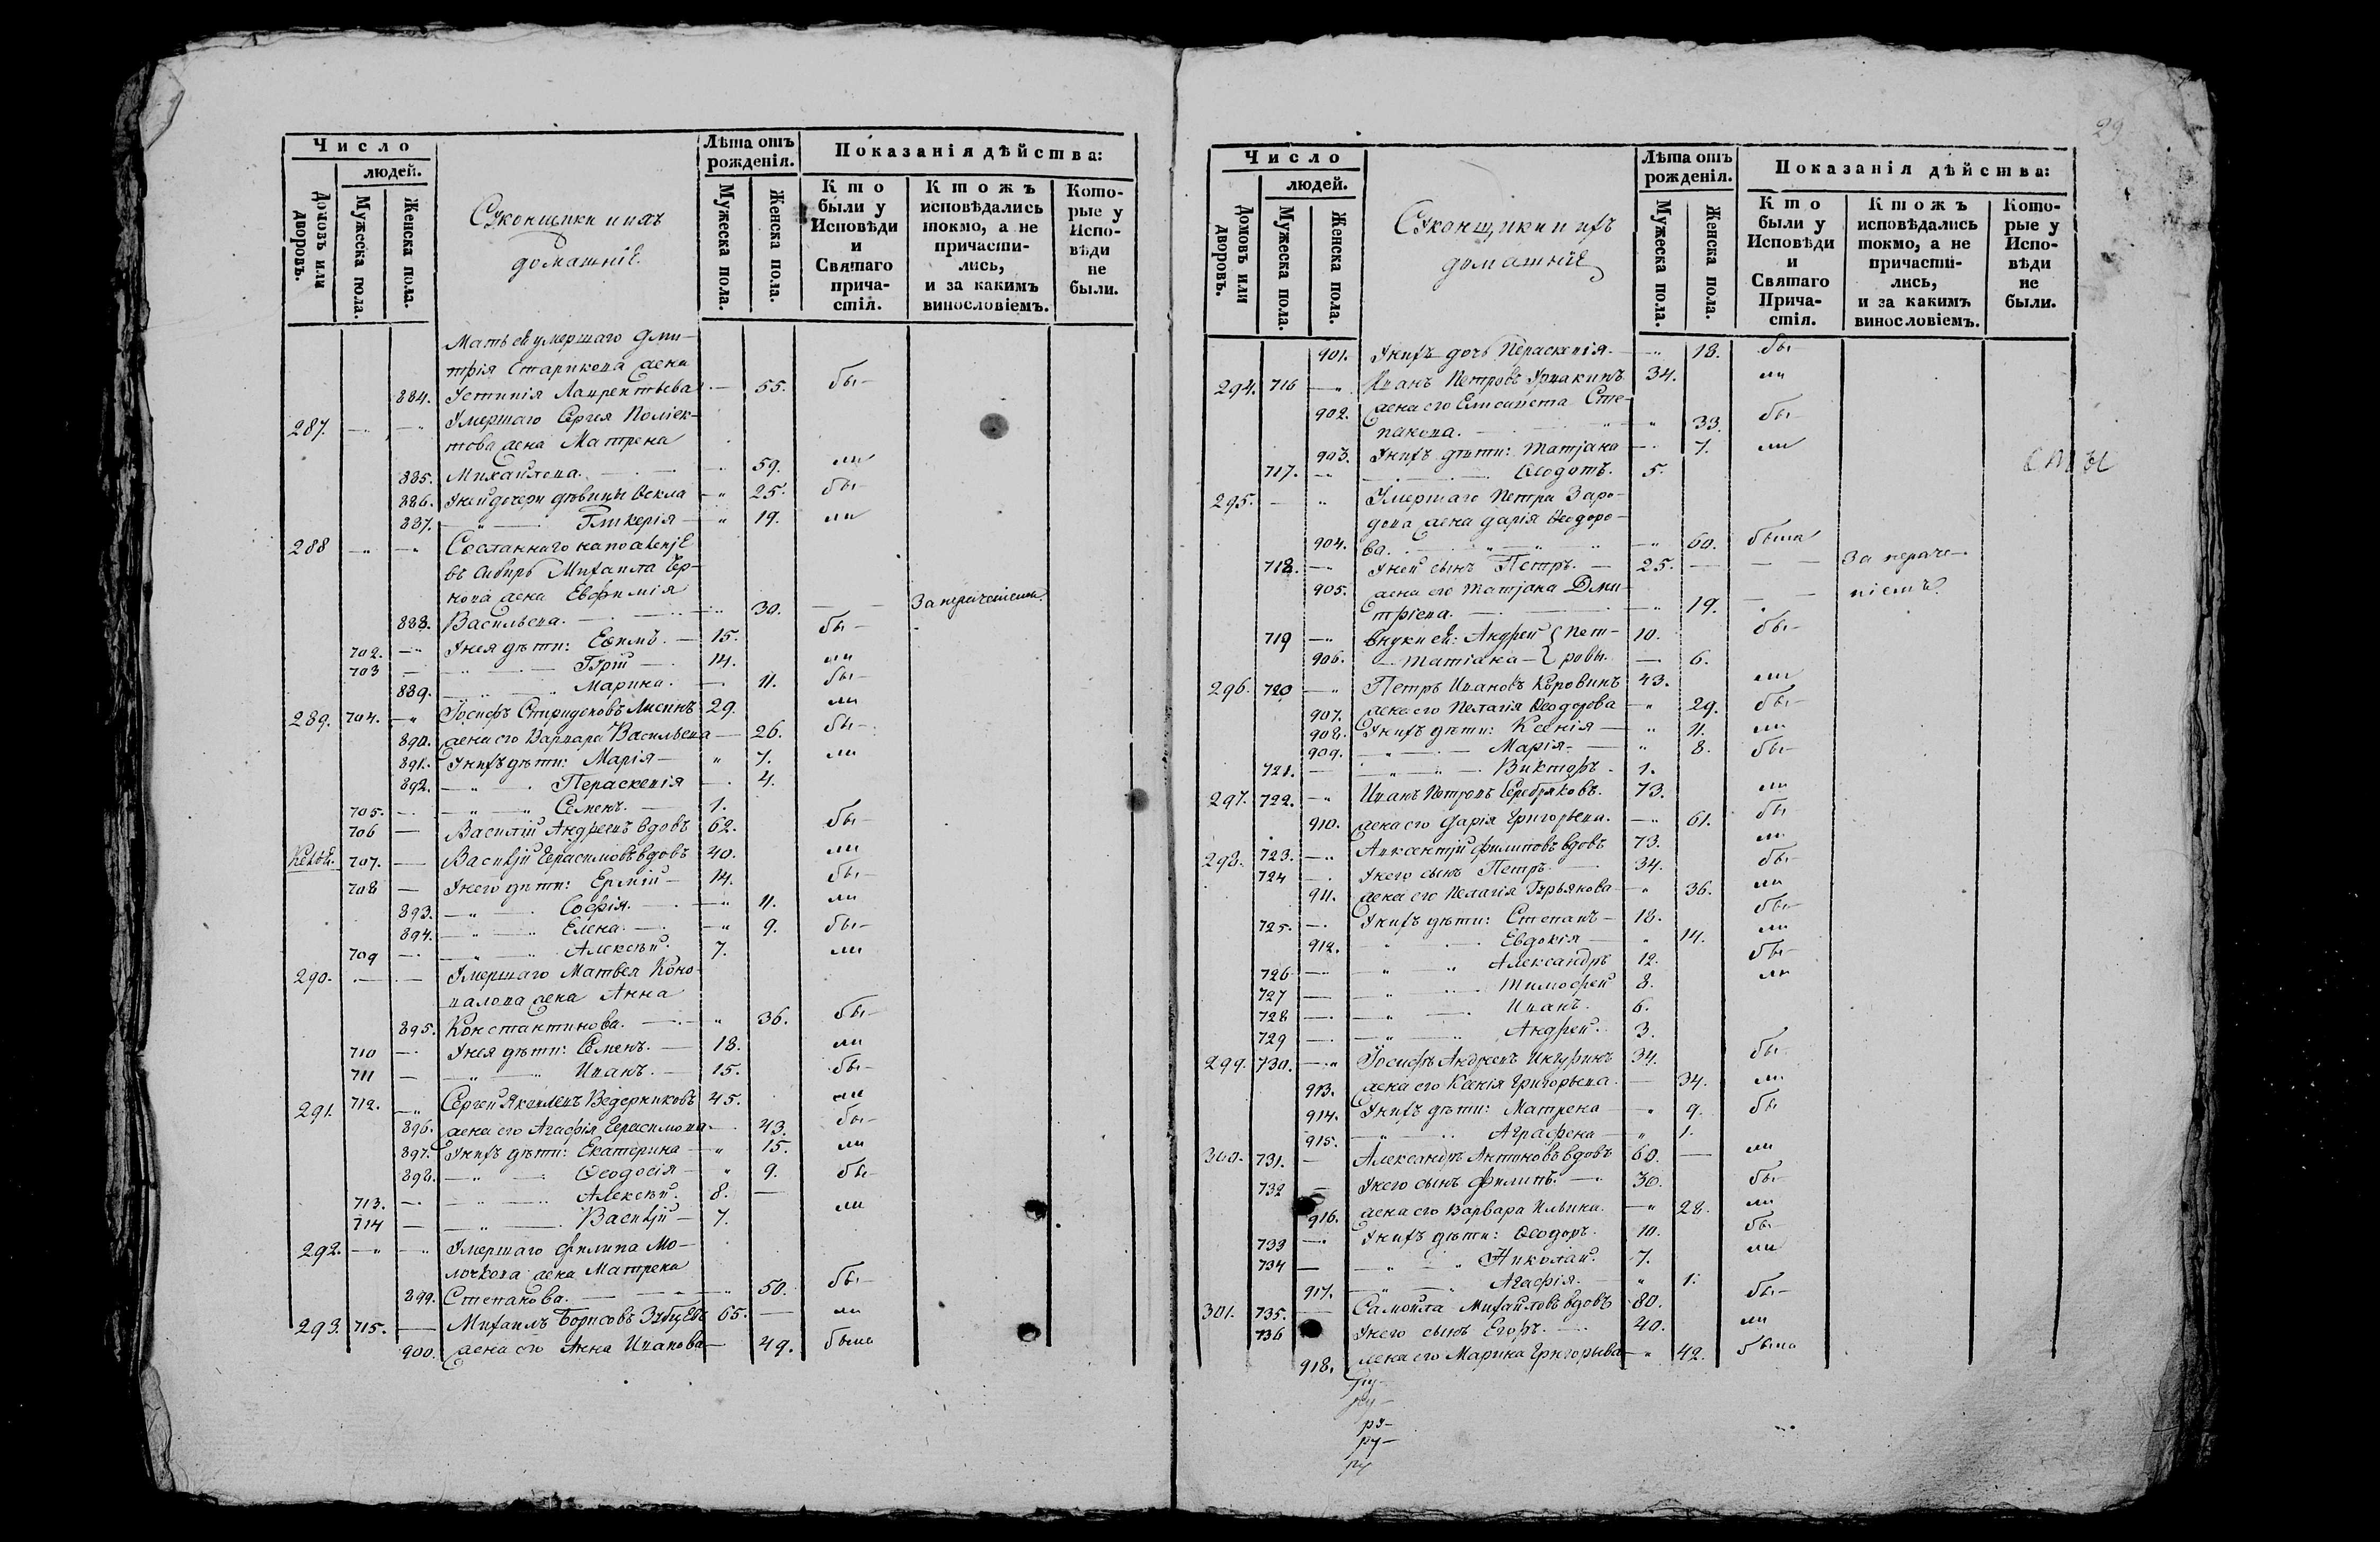 Число
людей.
Домовъ или дворовъ.
Мужеска пола.
Женска пола.
Суконщики и ихъ
домашніе.
Лѣта отъ
рожденія.
Мужеска пола.
Женска пола.
Показанія дѣйства:
Кто
были у
Исповѣди
и
Святаго
прича-
стія.
Ктожъ
исповѣдались
токмо, а не
причасти-
лись,
и за какимъ
винословіемъ.
Кото-
рые у
Испо-
вѣди
не
были.
Мать ей умершаго Дми-
трія Старикова жена
884. Устинія Лаврентьева 55. бы-
287. Умершаго Сергея Полiек-
това жена Матрена
885. Михайлова. 59. ли
886. У ней дочери дѣвицы Ѳекла 25. бы-
887. Гликерія 19. ли
288 Сосланнаго на поселеніе
въ Сибирь Михаила
жена Евфимія
888. Васильева. 30. За нераченіемъ.
702. У нея дѣти: Евимъ. 15. бы-
703 Гурій 14. ли
889. Марина. 11. бы-
289. 704. Іосифъ Спиридоновъ Лисинъ 29. ли
890. жена его Варвара Васильева 26. бы-
891. У нихъ дѣти: Марія 7. ли
892. Параскевія 4.
705. Семенъ. 1.
706 Василій Андреевъ вдовъ 62. бы-
707. Василій Герасимовъ вдовъ 40. ли
708 У него дѣти: Ермій 14. бы-
893. Софія. 11. ли
894. Елена. 9. бы-
709 Алексѣй. 7. ли
290. Умершаго Матвея Коно-
валова жена Анна
895. Константинова. 36. бы-
710 У нея дѣти: Семенъ. 18. ли
711 Иванъ. 15. бы-
291. 712. Сергей Яковлевъ Ведерниковъ 45. ли
896. жена его Агафія Герасимова 43. бы-
897. У нихъ дѣти: Екатерина 15. ли
898. Ѳеодосія 9. бы-
713. Алексѣй. 8.
714 Василій 7. ли
292. Умершаго Филипа Мо-
лочкова жена Матрена
899. Степанова. 50. бы-
293. 715. Михаилъ Борисовъ Зубцевъ 65. ли
900. жена его Анна Иванова 49. была
29
Число
людей.
Домовъ или дворовъ.
Мужеска пола.
Женска пола.
Суконщики и ихъ
домашніе
Лѣта отъ
рожденія.
Мужеска пола.
Женска пола.
Показанія дѣйства:
Кто
были у
Исповѣди
и
Святаго
Прича-
стія.
Ктожъ
исповѣдались
токмо, а не
причасти-
лись,
и за какимъ
винословіемъ.
Кото-
рые у
Испо-
вѣди
не
были.
901. У нихъ дочь Параскевія. 18. бы
294. 716 Иванъ Петровъ 34. ли
902. жена его Елисавета Сте-
панова. 33. бы-
903. У нихъ дѣти: Татіана 7. ли
717. Ѳеодотъ. 5.
295. Умершаго Петра Заро-
дова жена Дарія Ѳеодоро-
904. ва. 60. была
718. У ней сынъ Петръ. 25. За нераче-
905. жена его Татіана Дми- ніемъ.
тріева. 19.
719 внуки ей: Андрей { Пет- 10. бы-
906. Татіана { ровы. 6.
296. 720 Петръ Ивановъ Коровинъ 43. ли
907. жена его Пелагія Ѳеодорова 29. бы-
908. У нихъ дѣти: Ксенія 11. ли
909. Марія. 8. бы-
721. Викторъ 1.
297. 722. Иванъ Петровъ Серебряковъ. 73. ли
910. жена его Дарія Григорьева. 61. бы
298. 723. Авксентій Филиповъ вдовъ 73. ли
724 У него сынъ Петръ. 34. бы-
911. жена его Пелагія Гурьянова 36. ли
725. У нихъ дѣти: Степанъ 18. бы-
912. Евдокія 14. ли
726 Александръ 12. бы-
727 Тимофей 8. ли
728 Иванъ. 6.
729 Андрей. 3.
299. 730. Іосифъ Андреевъ 34. бы-
913. жена его Ксенія Григорьева. 34. ли
914. У нихъ дѣти: Матрена 9. бы
915. Аграфена 1.
300. 731. Александръ Антоновъ вдовъ 60. ли
732 У него сынъ Филипъ. 30. бы-
916. жена его Варвара Ильина. 28. ли
733 У нихъ дѣти: Ѳеодоръ. 10. бы
734 Николай. 7. ли
917. Агафія. 1.
301. 735. Самойла Михайловъ вдовъ 80. бы-
736 У него сынъ Егоръ. 40. ли
918. жена его Марина Григорьева 42. была
ру-
ру-
ру-
ру-
ру